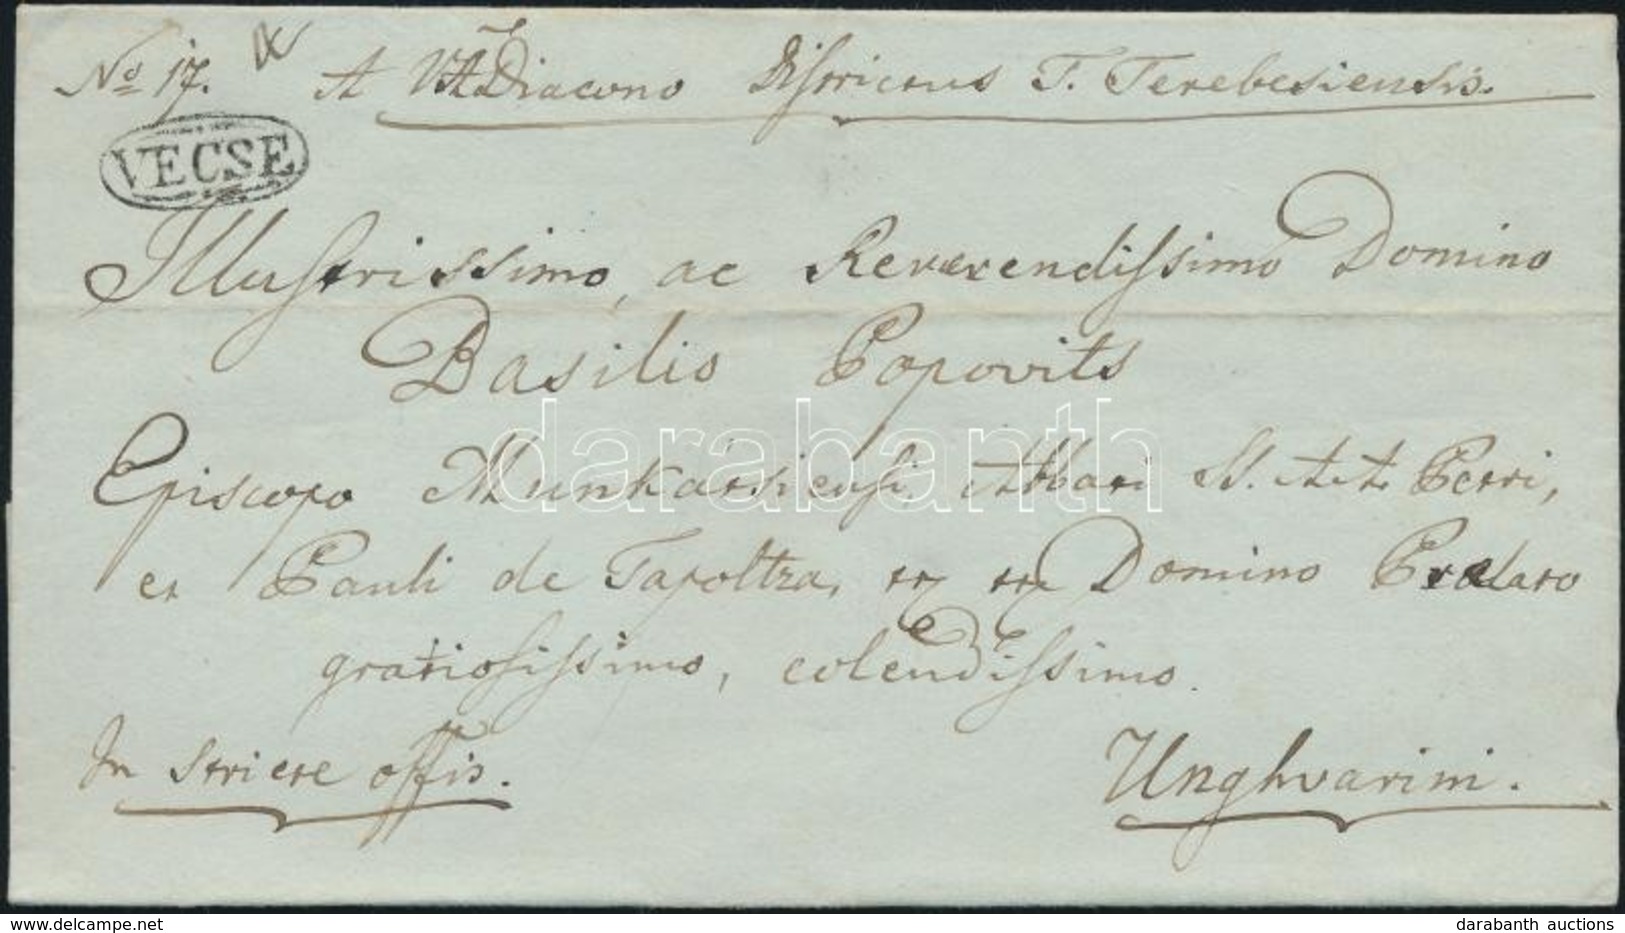 No 17. A V. A Diacono Districtus T. Terebesiensis.
VECSE
Illustrissimo, ac Reverendissimo Domino
Basilio Popovits
Episcopo Munkátsiensi, Abbati SS. A. A. Petri,
et Pauli de Tapoltza, Domino Prælato
gratiosissimo, colendissimo.
In stricte offis.
Unghvarini.
darabanth
www.delcampe.net
darabanth auctions